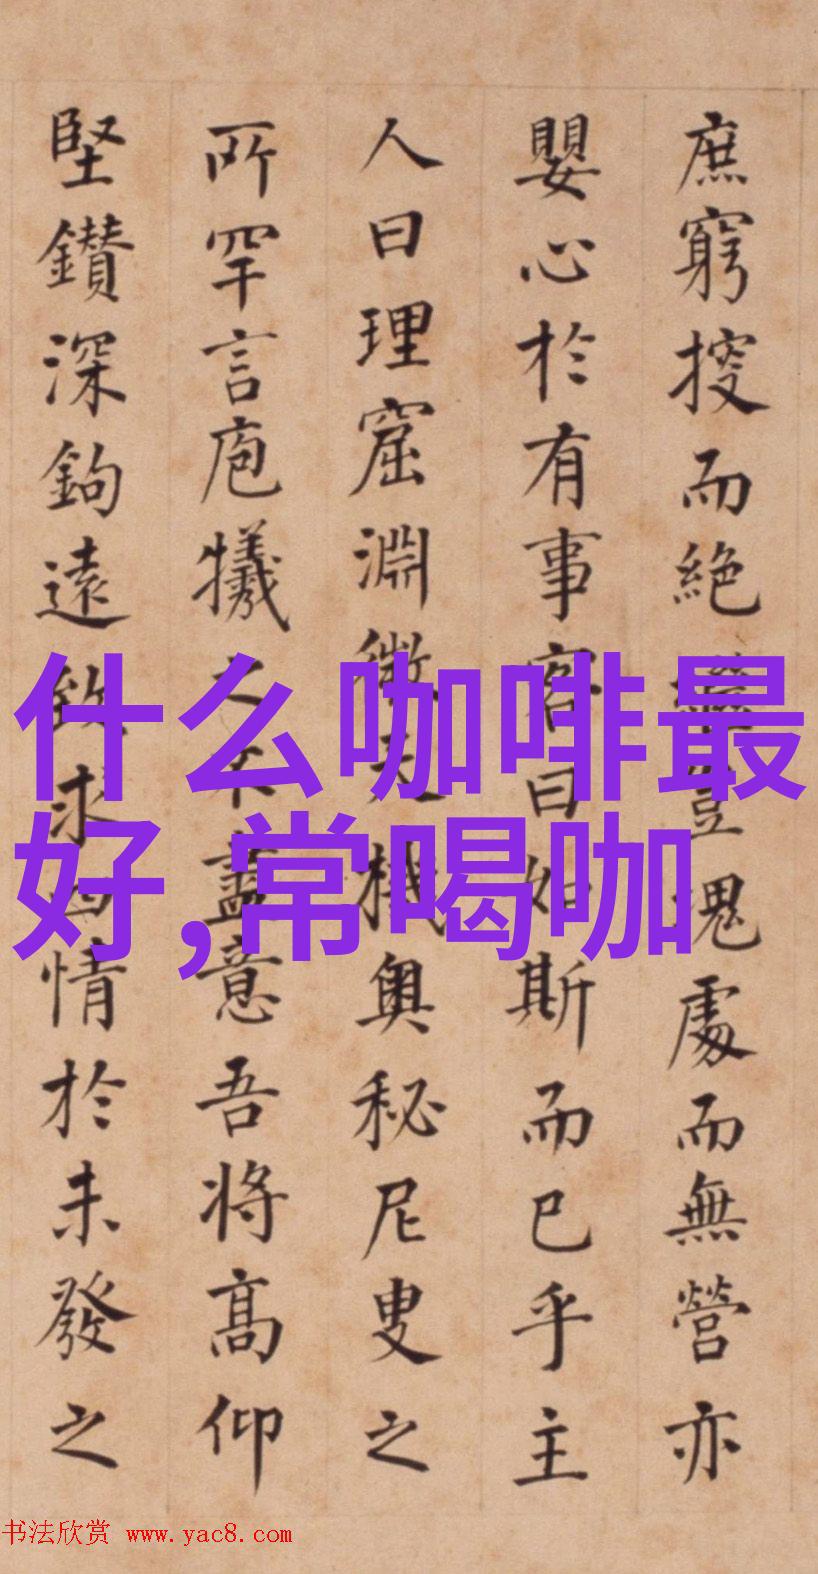 庶窮揬而絶
豈瑰處而無營亦
嬰心於有事客曰如斯而已乎主
人曰理窟淵微天機奥秘尼叟之
所罕言庖犧之不盡意吾将髙仰
堅鑽深鉤遠致求心情於未發之
什么咖啡最
好,常喝咖
书法欣赏 www.yac8.com